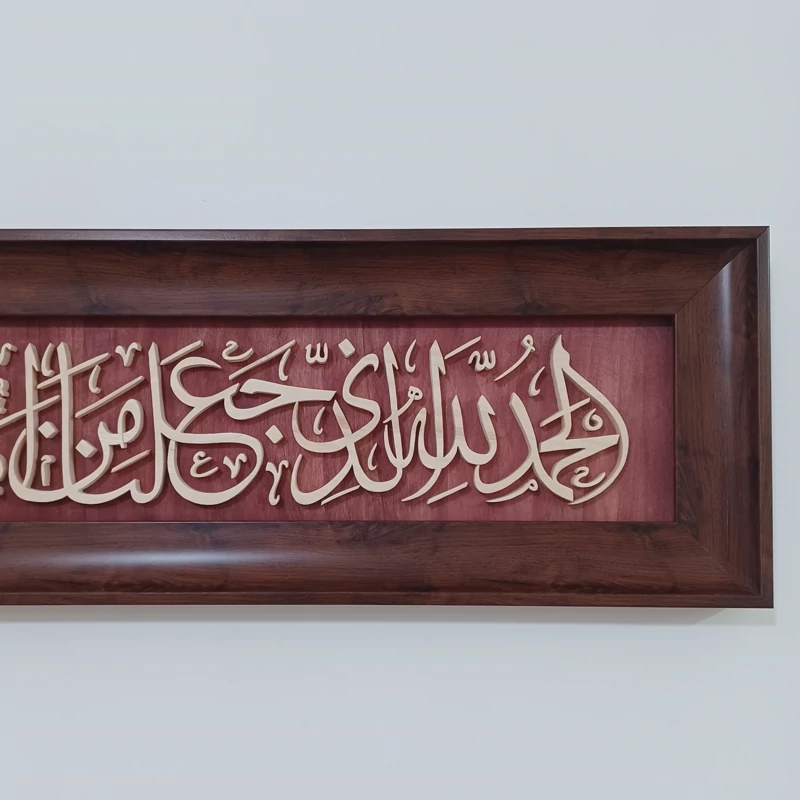 الحمد لله الذي جعلنا من